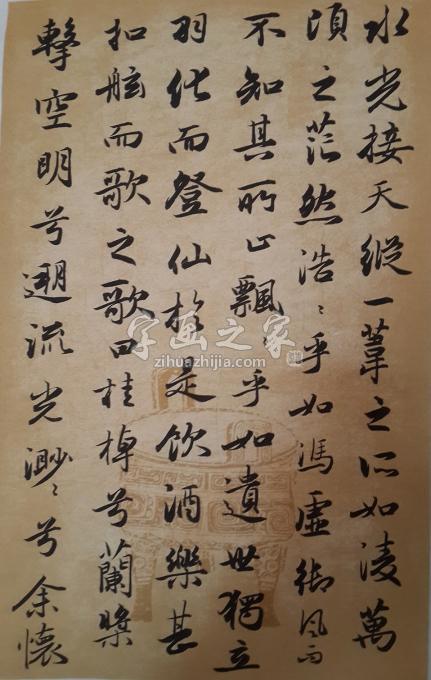 水光接天縱一葦之所如凌萬
頃之茫然浩〻乎如馮虛御風而
不知其所止飄〻乎如遺世獨立
羽化而登仙於是飲酒樂甚
扣舷而歌之歌曰桂棹兮蘭槳
擊空明兮遡流光渺〻兮余懷
字画之家
zihuazhijia.com